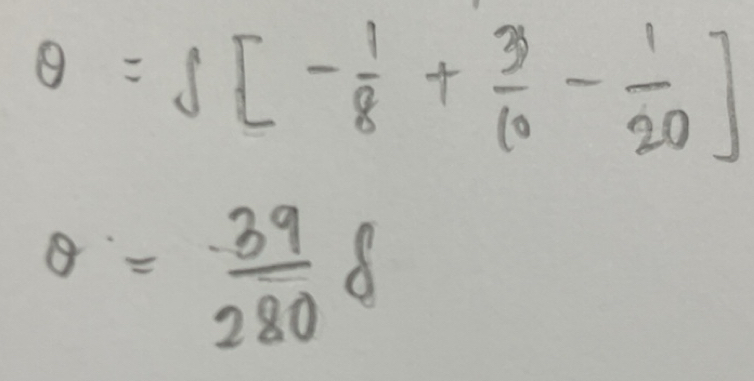 θ = δ [ - 1/8 + 3/10 - 1/20 ]
θ = 39/280 δ